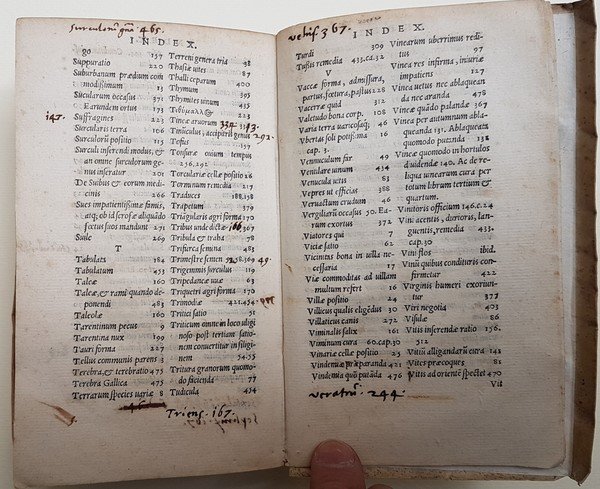 surculorũ gña 465.
INDEX.
go 157
Suppuratio 220
Suburbanum prædium com
modißimum 13
Sucularum occasus 371
Earundem ortus 373
147. Suffragines 223
Surcularis terra 166
Surculorũ positio 115
Surculi inserendi modus, &
an omne surculorum ge-
nus inseratur 201
De Subus & eorum medi-
cinis 266
Sues impatientißimæ famis,
atq; ob id scrofæ aliquãdo
fœtus suos mandunt 271
Suile 269
T
Tabulatæ 184
Tabulatum 453
Taleæ 160
Taleæ, & rami quando de-
ponendi 483
Taleolæ 160
Tarentinum pecus 9
Tarentina nux 199
Tauri forma 227
Tellus communis parens 3
Terebra, & terebratio 475
Terebra Gallica 475
Terrarum species variæ 8
Terreni genera tria 38
Thasiæ uites 87
Thalli ceparum 400
Thymum 395
Thymites uinum 435
& 223
Tineæ aruorum 334
Tinuculus, accipitris genus 292.
Tofus 157
Tonsuræ ouium tempus
256.292
Torculariæ cellæ positio 26
Torminum remedia 219
Traduces 188.138
Trapetum 379
Triangularis agri forma 170
Tribus unde dictæ 167
Tribula & traha 78
Trifurca semina 483
Trimestre semen 52.58.169 49.
Trigemmis surculus 119
Tripedaneæ uuæ 63
Triquetri agri forma 170
Trimodiæ
Tritici satio 51
Triticum omne in loco uligi
noso post tertiam satio-
nem conuertitur in siligi
nem 54.55
Tritura granorum quomo
do facienda 77
Tudicula 454
Triens. 167.
vehis 367.
INDEX.
Turdi 309
Tußis remedia 433.ca.32
V
Vaccæ forma, admissura,
partus, fœtura, pastus 228
Vacerræ quid 312
Valetudo bona corp. 108
Varia terra uarcosaq; 46
Vbertas soli potißima 16
cap. 3.
Vennuculum far 49
Venulare unum 434
Venucula uetis 83
Vepres ut officias 388
Veruactum 46
Vergiliarũ occasus 50. Ea-
rum exortus 372
Viatores qui 7
Viciæ satio 62
Vicinitas bona in uilla ne-
cessaria 17
Viæ commoditas ad uillam
multum refert 16
Villæ positio 24
Villicus qualis eligẽdus 30
Villaticus canis 272
Viminalis salix 161
Viminum cura 60.cap.30
Vinariæ cellæ positio 25
Vindemiæ præparanda 421
Vindemia quõ putãda 476
Vinearum uberrimus redi-
tus 97
Vinea res infirma, iniuriæ
impatiens 127
Vinea uetus nec ablaquean
da nec aranda 478
Vineæ quãdo palandæ 367
Vinea per autumnum abla-
queanda 131. Ablaqueata
quomodo putanda 132
Vineæ quomodo in hortulos
diuidendæ 140. Ac de re-
liqua uinearum cura per
totum librum tertium &
quartum.
Vinitoris officium 146.c.24
Vini acentis, durioris, lan-
guentis, remedia 433.
cap.30
Vini flos ibid.
Vinũ quibus conditiuris con-
firmetur 422
Virginis humeri exoriun-
tur 377
Viri negotia 403
Visulæ 86
Vitis inserendæ ratio 156.
512
Vitiũ alligandarũ cura 142
Vites præcoques 82
Vitis ad orientẽ spectet 470
Vit
veratrũ. 244.